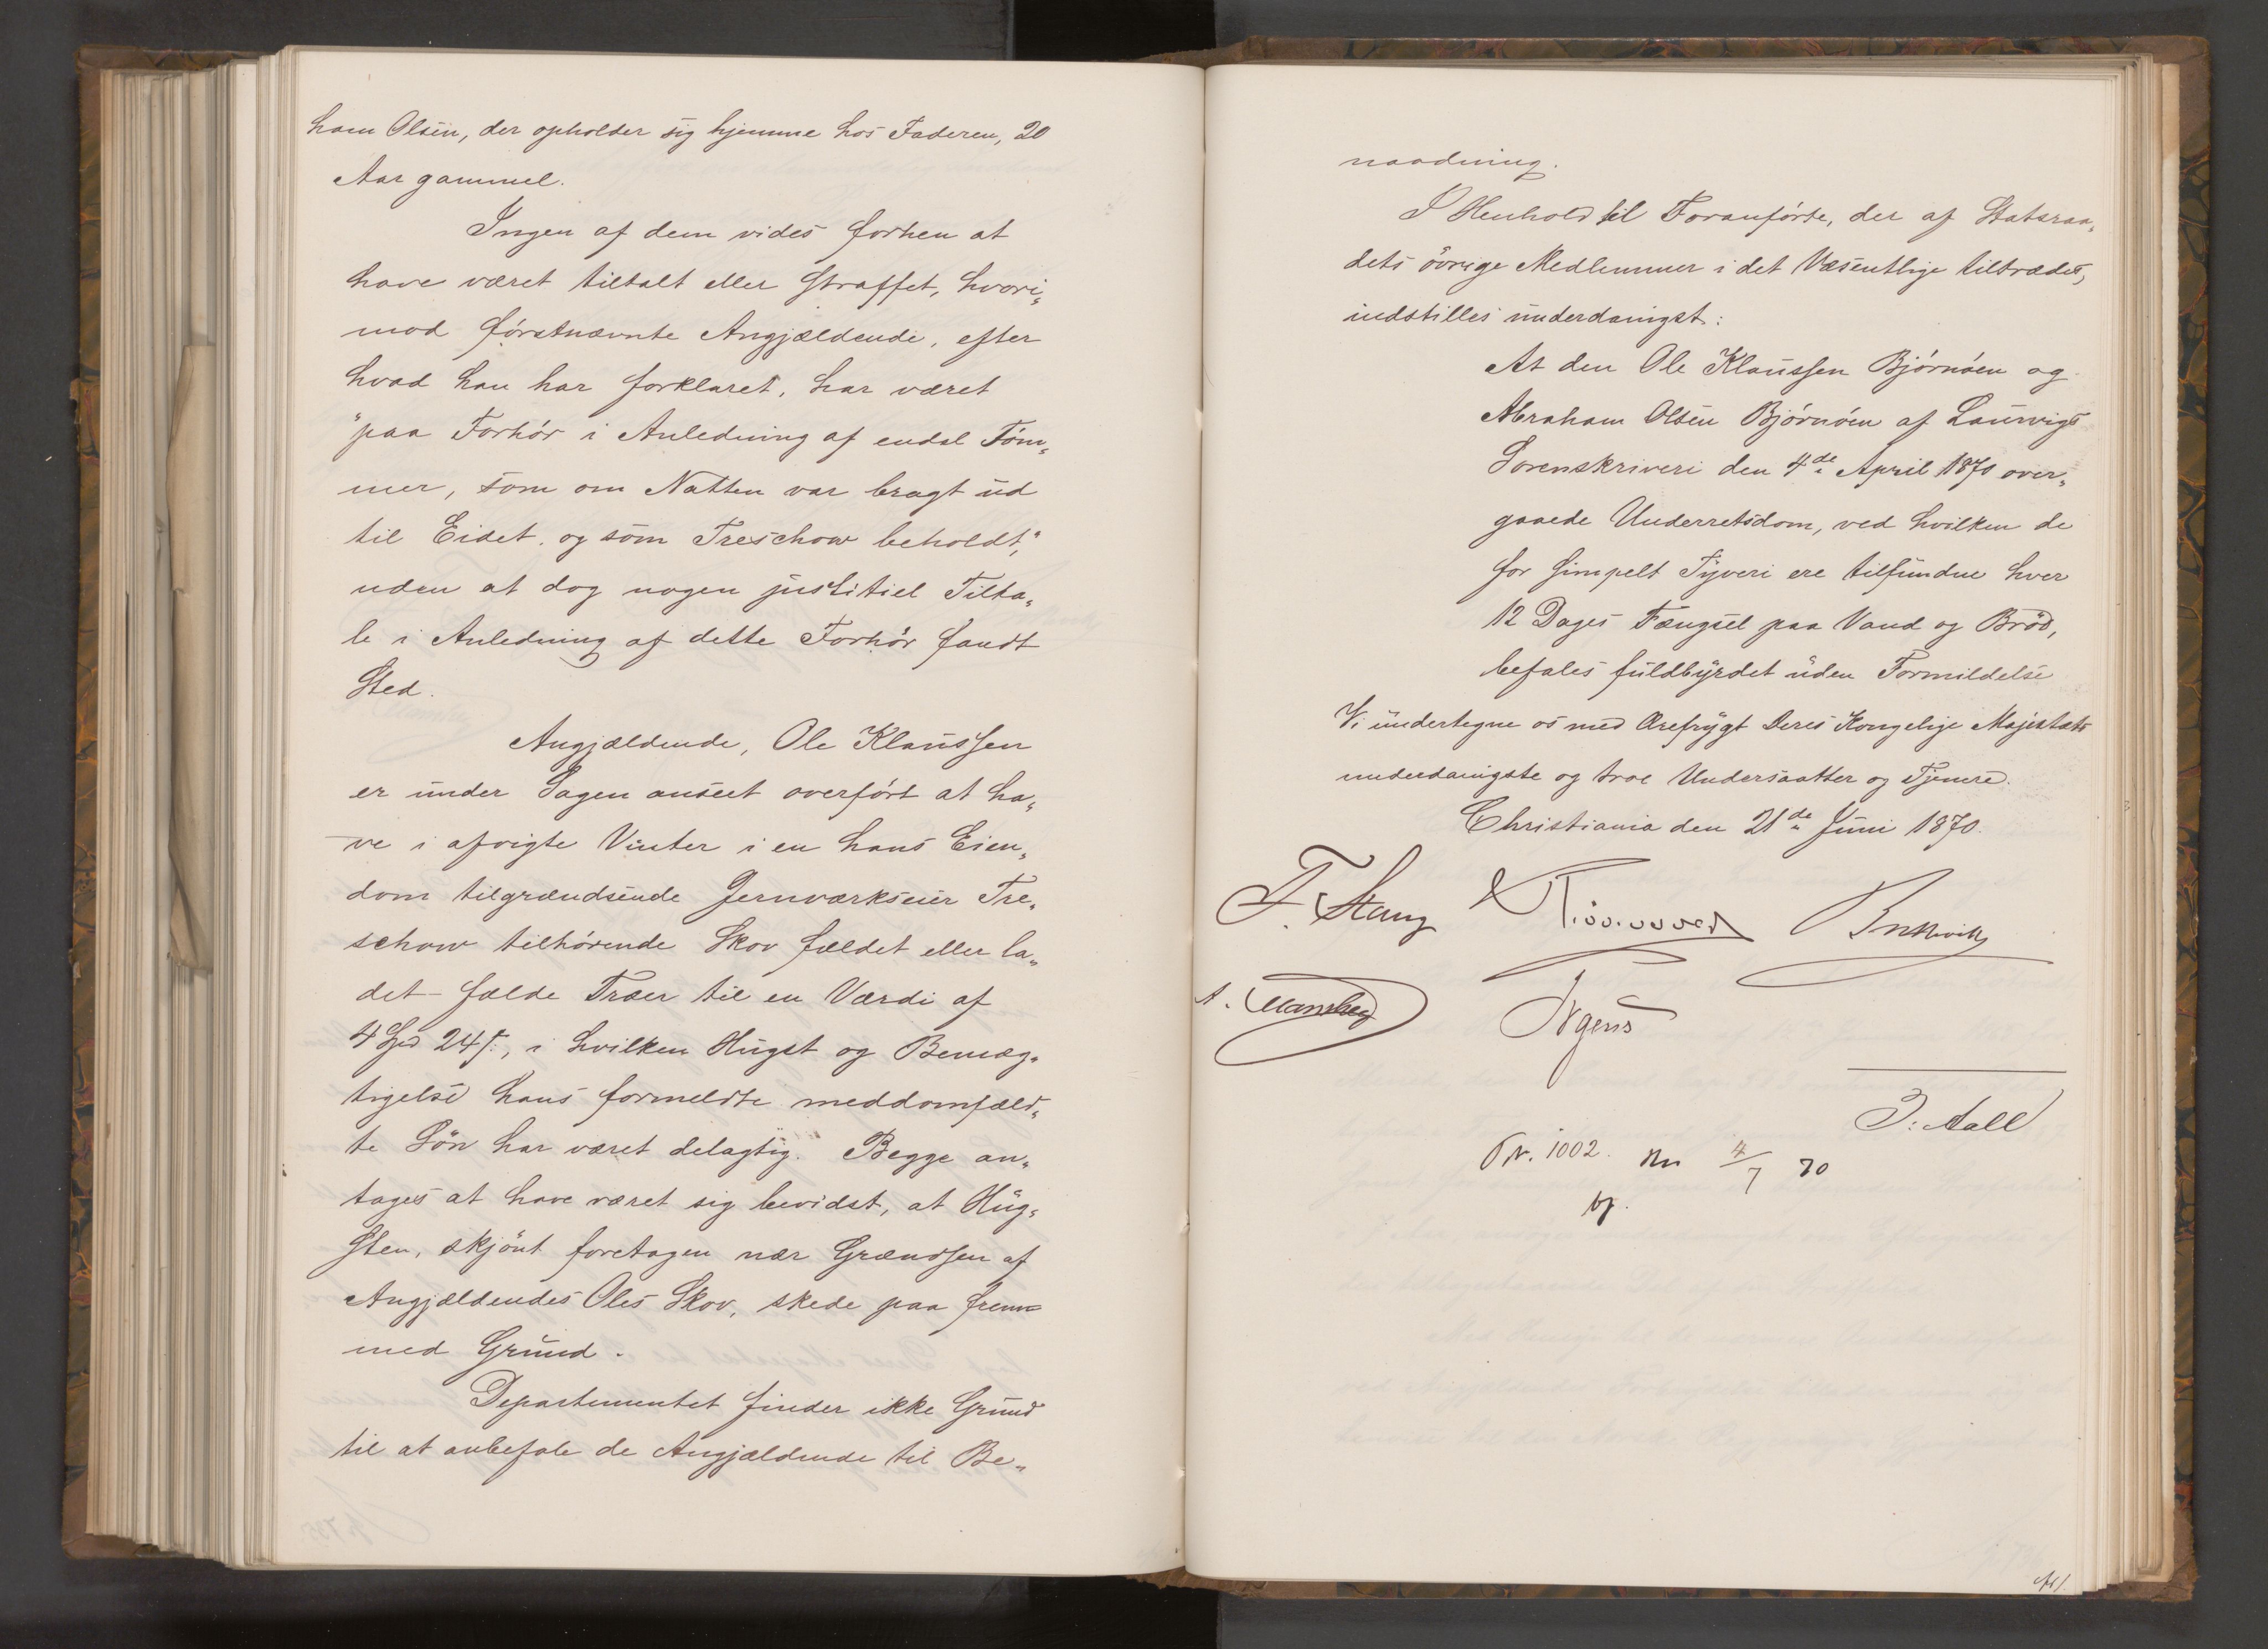 ham Olsen, der opholder sig hjemme hos Faderen, 20
Aar gammel.
Ingen af dem vides forhen at
have været tiltalt eller straffet, hvori„
mod förstnævnte Angjældende, efter
hvad han har forklaret, har været
"paa Forhör i Anledning af endel Töm„
mer, som om Natten var bragt ud
til Eidet, og som Treschow beholdt",
uden at dog nogen justitiel Tilta„
le i Anledning af dette Forhör fandt
Sted.
Angjældende, Ole Klaussen
er under Sagen anseet overfört at ha„
ve i afvigte Vinter i en hans Eien„
dom tilgrændsende Jernværkseier Tre„
schow tilhörende Skov fældet eller la„
det fælde Træer til en Værdi af
4 Spd 24 s., i hvilken Hugst og Bemæg„
tigelse hans formeldte meddomfæld„
te Sön har været delagtig. Begge an„
tages at have været sig bevidst, at Hug„
sten, skjönt foretagen nær Grændsen af
Angjældendes Oles Skov, skede paa frem„
med Grund.
Departementet finder ikke Grund
til at anbefale de Angjældende til Be„
naadning.
I Henhold til Foranförte, der af Statsraa„
dets övrige Medlemmer i det Væsentlige tiltrædes,
indstilles underdanigst:
At den Ole Klaussen Björnöen og
Abraham Olsen Björnöen af Laurvigs
Sorenskriveri den 4de April 1870 over„
gaaede Underretsdom, ved hvilken de
for simpelt Tyveri ere tilfundne hver
12 Dages Fængsel paa Vand og Bröd,
befales fuldbyrdet uden Formildelse
Vi undertegne os med Ærefrygt Deres Kongelige Majestæts
underdanigste og troe Undersaatter og Tjenere.
Christiania den 21de Juni 1870.
F. Stang
A. Manthey
Irgens
J. Aall
Nr. 1002. 4/7 70